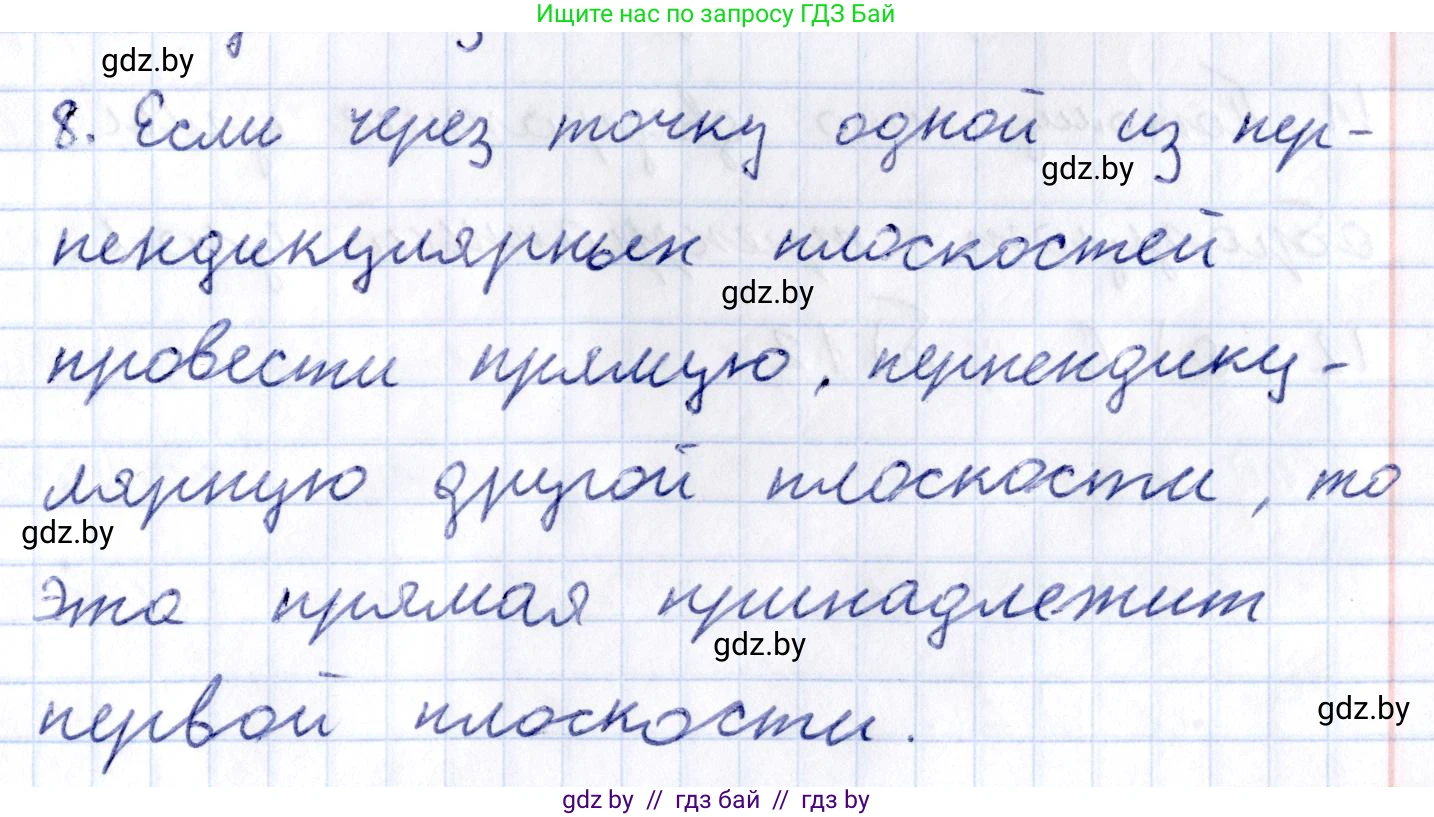 Ищите нас по запросу ГДЗ Бай
gdz.by
8. Если через точку одной из пер-
gdz.by
пендикулярных плоскостей
gdz.by
провести прямую, перпендику-
лярную другой плоскости, то
gdz.by
эта прямая принадлежит
gdz.by
первой плоскости.
gdz.by
gdz by // гдз бай // гдз by